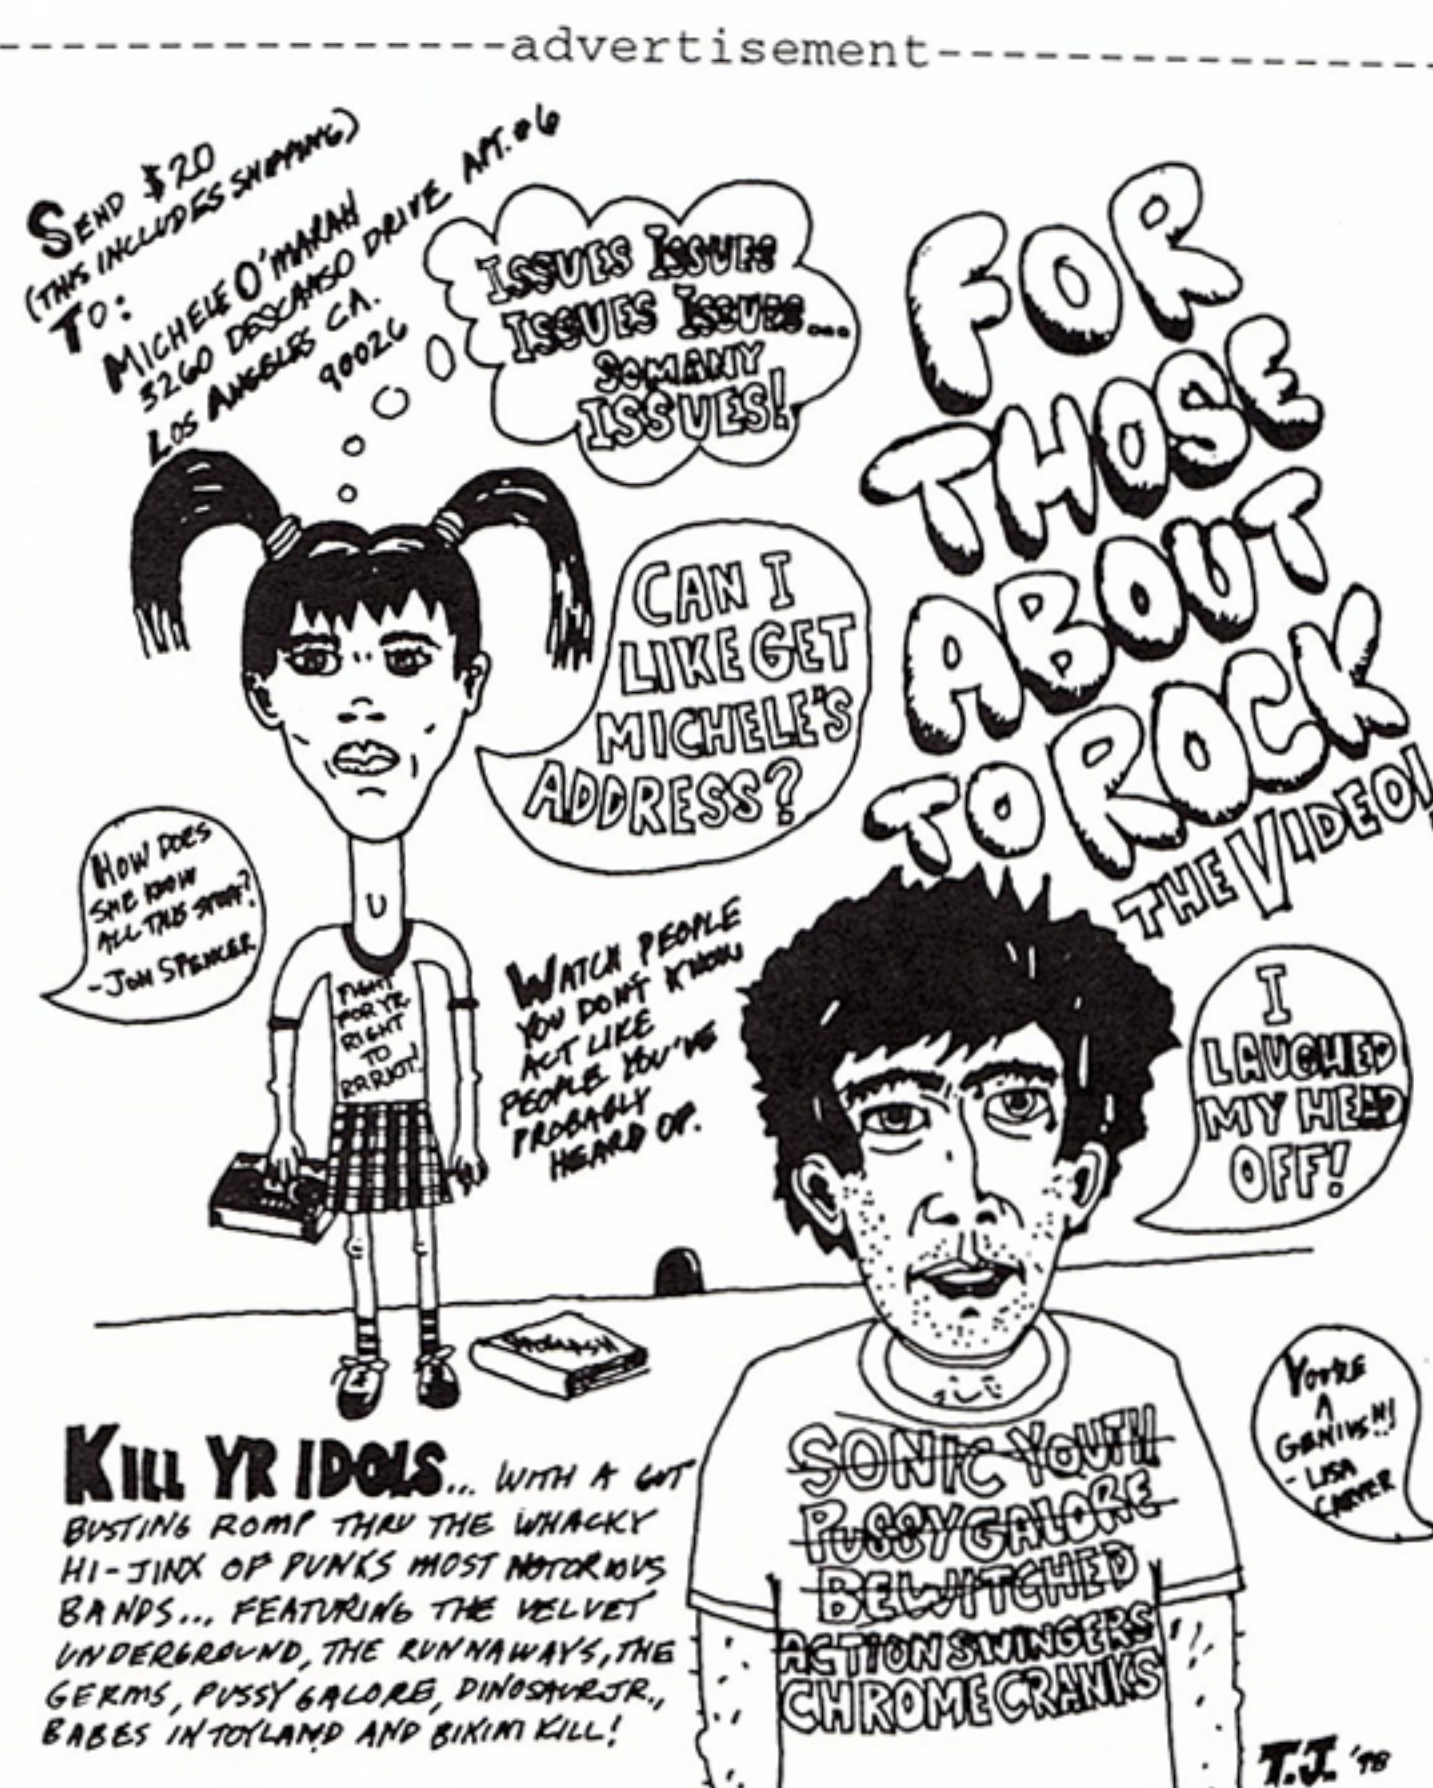 ----------------advertisement----------------
SEND $20
(THIS INCLUDES SHIPPING)
TO:
MICHELE O'MARAH
3260 DESCANSO DRIVE APT. #6
LOS ANGELES CA.
90026
ISSUES ISSUES
ISSUES ISSUES...
SO MANY
ISSUES!
FOR
THOSE
ABOUT
TO ROCK
THE VIDEO!
CAN I
LIKE GET
MICHELE'S
ADDRESS?
HOW DOES
SHE KNOW
ALL THIS STUFF?
- JON SPENCER
FIGHT
FOR YR
RIGHT
TO
RRRIOT!
WATCH PEOPLE
YOU DON'T KNOW
ACT LIKE
PEOPLE YOU'VE
PROBABLY
HEARD OF.
I
LAUGHED
MY HEAD
OFF!
YOU'RE
A
GENIUS!!!
- LISA
CARVER
KILL YR IDOLS... WITH A GUT
BUSTING ROMP THRU THE WHACKY
HI-JINX OF PUNKS MOST NOTORIOUS
BANDS... FEATURING THE VELVET
UNDERGROUND, THE RUNNAWAYS, THE
GERMS, PUSSY GALORE, DINOSAUR JR.,
BABES IN TOYLAND AND BIKINI KILL!
SONIC YOUTH
PUSSY GALORE
BEWITCHED
ACTION SWINGERS
CHROME CRANKS
T.J. '98